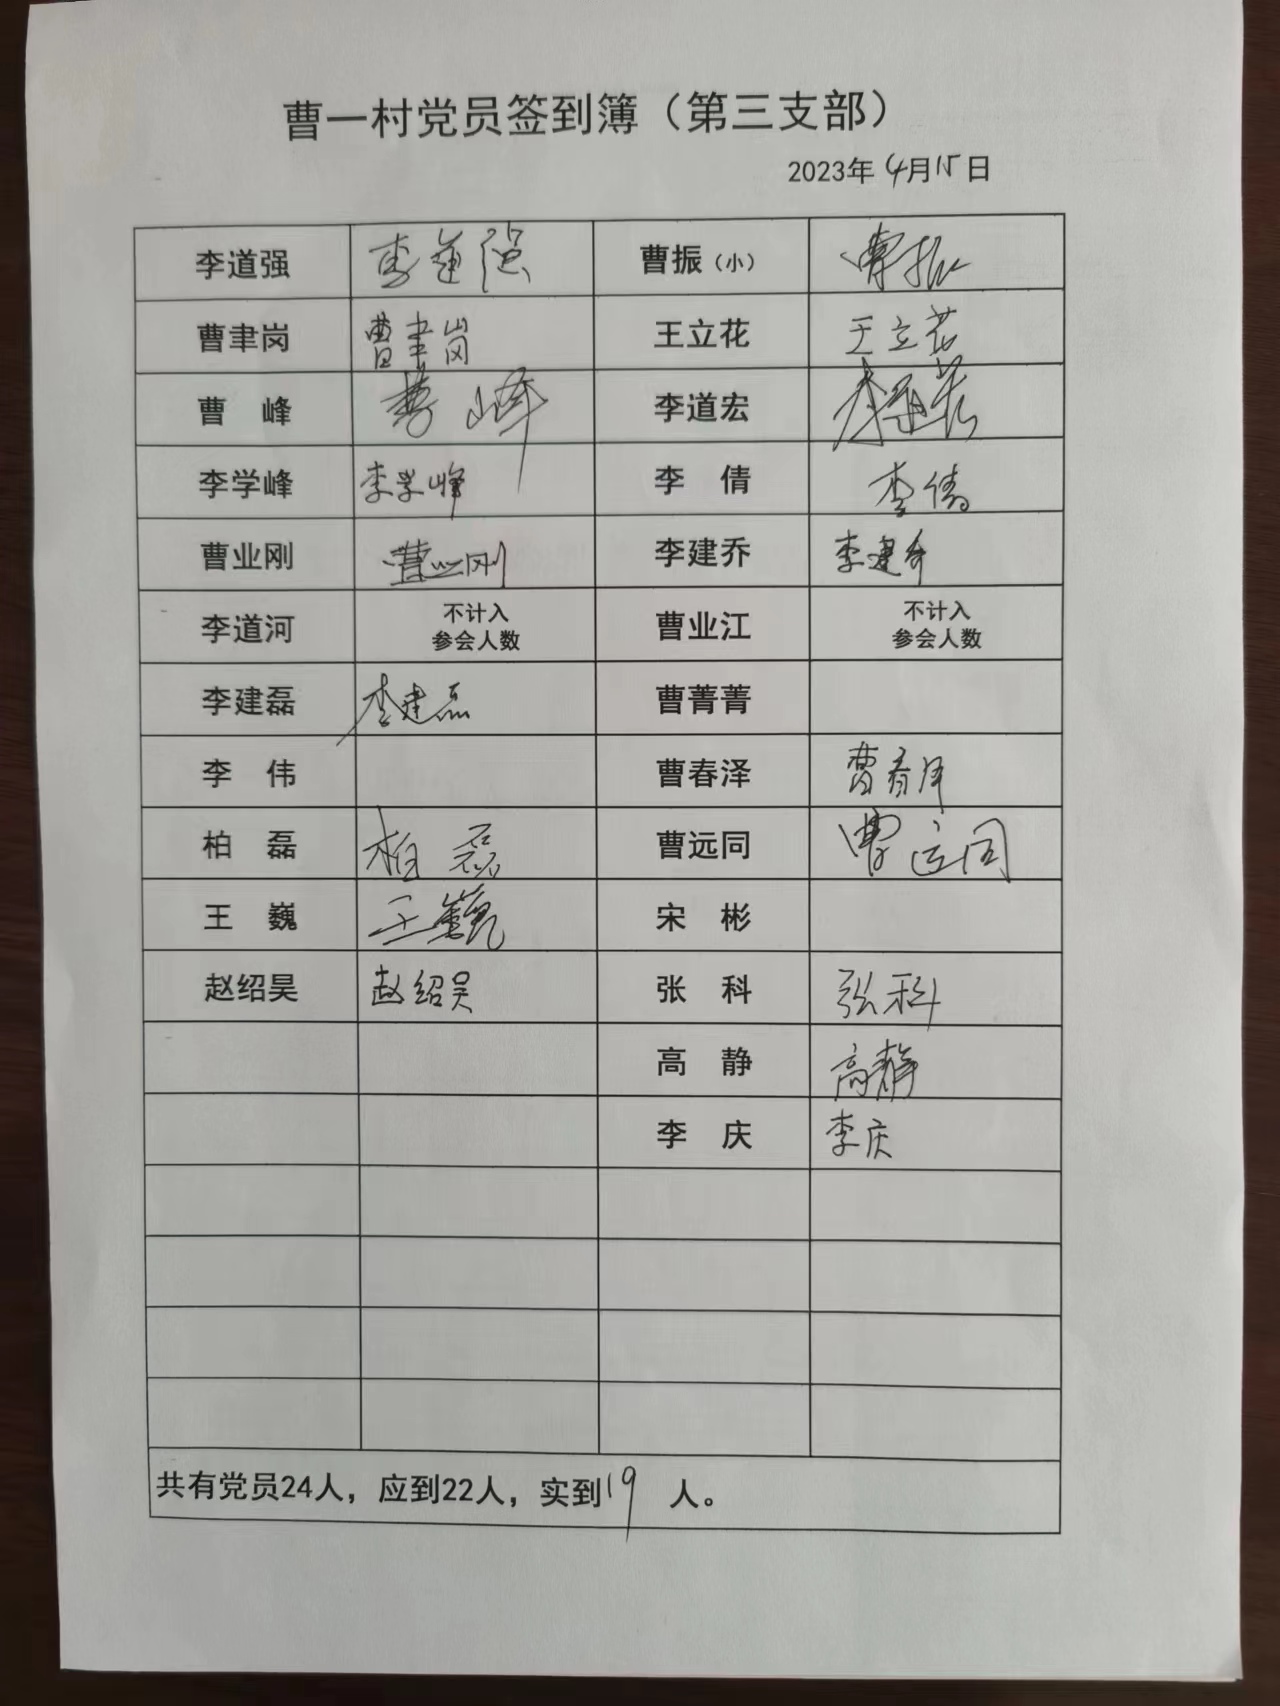 曹一村党员签到簿（第三支部）
2023年4月15日
李道强 李道强 曹振（小） 曹振
曹聿岗 曹聿岗 王立花 王立花
曹　峰 曹峰 李道宏 李道宏
李学峰 李学峰 李　倩 李倩
曹业刚 曹业刚 李建乔 李建乔
李道河 不计入 曹业江 不计入
参会人数 参会人数
李建磊 李建磊 曹菁菁
李　伟 曹春泽 曹春泽
柏　磊 柏磊 曹远同 曹远同
王　巍 王巍 宋　彬
赵绍昊 赵绍昊 张　科 张科
高　静 高静
李　庆 李庆
共有党员24人，应到22人，实到19人。